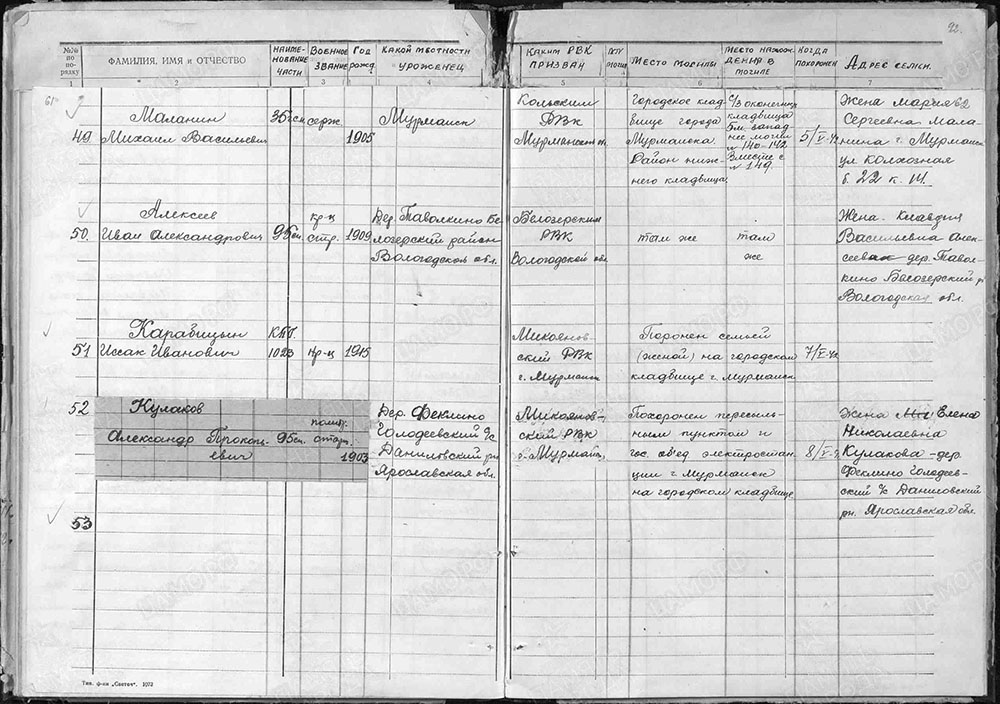 92.
№№ по по- рядку
ФАМИЛИЯ, ИМЯ и ОТЧЕСТВО
НАИМЕ- НОВАНИЕ ЧАСТИ
ВОЕННОЕ ЗВАНИЕ
ГОД РОЖД.
КАКОЙ МЕСТНОСТИ УРОЖЕНЕЦ
КАКИМ РВК ПРИЗВАН
МЕСТО МОГИЛЫ
МЕСТО НАХОЖ- ДЕНИЯ В МОГИЛЕ
КОГДА ПОХОРОНЕН
АДРЕС СЕМЬИ.
1 2 3 4 5 6 7
61
49
Маланин
Михаил Васильевич
35
серж.
1905
Мурманск
Кольским
РВК
Городское клад-
бище города
Мурманска.
Район ниж-
него кладбища.
С/з оконечн.
кладбища
5м запад-
нее могил
№ 140-142
Вместе с
№ 149.
5/V-42
Жена Мария
Сергеевна Мала-
нина г. Мурманск
ул Колхозная
б. 22 к. 111.
50.
Алексеев
Иван Александрович
95сп.
кр-ц
стр.
1909
Дер. Таволкино Бе-
лозерский район
Вологодской обл.
Белозерским
РВК
Вологодской обл
там же
там
же
Жена - Клавдия
Васильевна Алек-
сеева дер. Тавол-
кино Белозерский р
Вологодская обл.
51
Карабицын
Иссак Иванович
1023
кр-ц
1915
Микоянов-
ский РВК
г. Мурманск
Поронен семьей
(женой) на городском
кладбище г. Мурманск
7/V-42
52
Кулаков
Александр Прокопь-
евич
95сп.
1903
Дер. Феклино
Голодеевский с/с
Даниловский рн
Ярославская обл.
Микоянов-
ский РВК
г. Мурманск
Похоронен пересыль-
ным пунктом и
гос. об'ед. электростан-
ции г. Мурманск
на городском кладбище
8/V-42
Жена Елена
Николаевна
Кулакова - дер.
Феклино Голодеев-
ский с/с Даниловский
рн. Ярославская обл.
53
Тип. ф-ки „Светоч". 1972